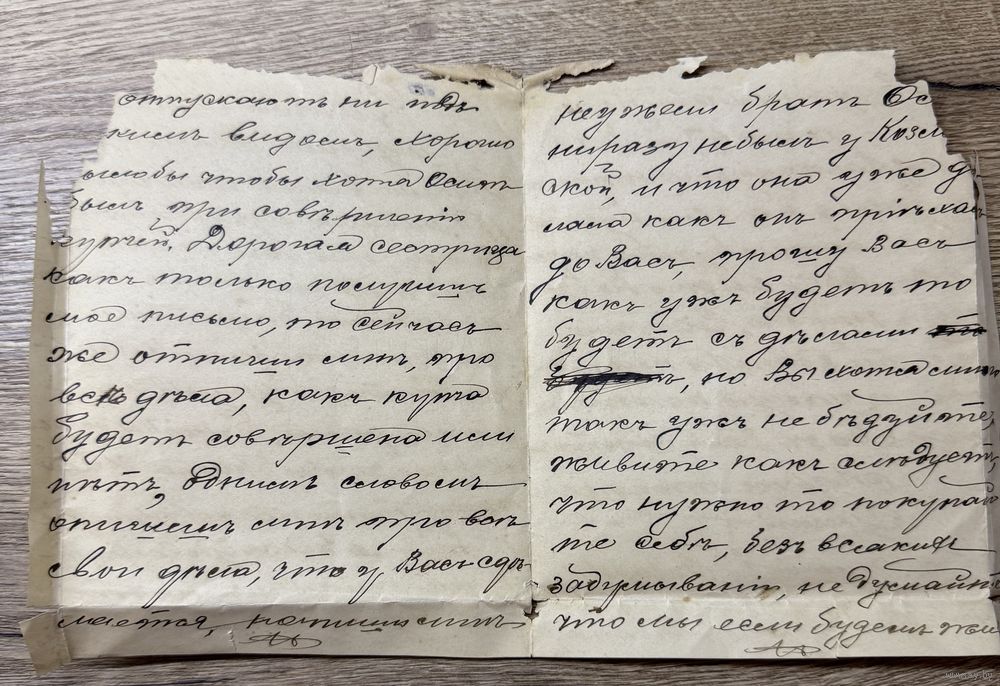 отпускаютъ ни подъ
видомъ, хорошо
былобы чтобы хотя Осипъ
былъ при совѣршенію
купчей. Дорогая сестрица
какъ только получишъ
мое письмо, то сейчасъ
же отпиши мнѣ, про
всѣ дѣла, какъ купча
будетъ совѣршена или
нѣтъ, Однимъ словомъ
опишешъ мнѣ про всѣ
свои дѣла, что у Васъ сдѣ-
лается, напиши мнѣ
неужели братъ Ос
ниразу небылъ у Козл
ской, и что она уже д
лала какъ онъ пріѣхалъ
до Васъ, прошу Васъ
какъ ужъ будетъ то
будетъ съ дѣлами
но Вы хотя
такъ ужъ не бѣдуйте,
живите какъ слѣдуетъ,
что нужно то покупай
те себѣ, безъ всякихъ
задумываній, не думайте
что мы если будемъ жи